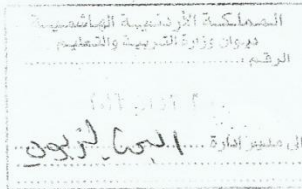 المملكة الأردنية الهاشمية
ديوان وزارة التربية والتعليم
الرقم
الى مدير ادارة البحث التربوي